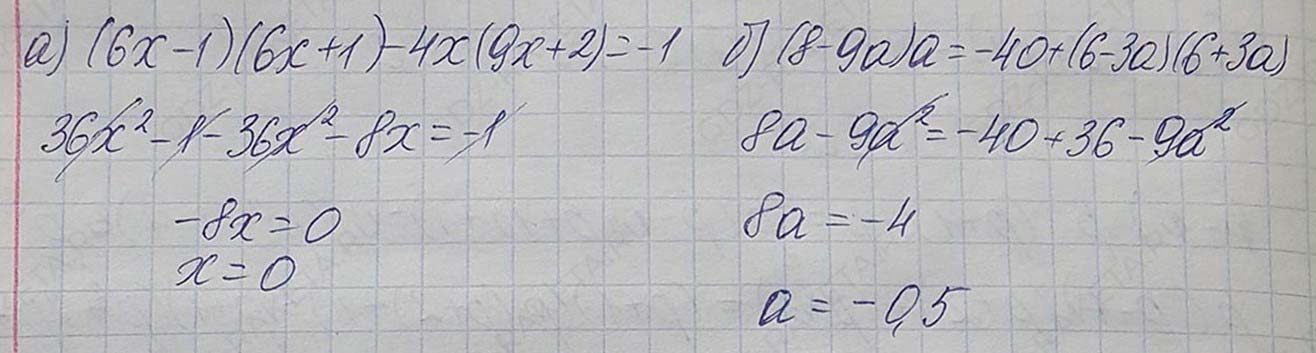 а) (6x-1)(6x+1)-4x(9x+2)=-1
36x²-1-36x²-8x=-1
-8x=0
x=0
б) (8-9a)a=-40+(6-3a)(6+3a)
8a-9a²=-40+36-9a²
8a=-4
a=-0,5